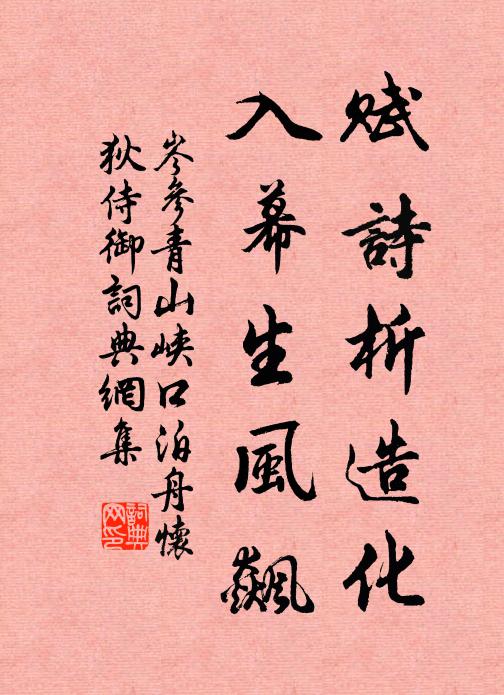 賦詩析造化
入幕生風飆
岑參青山峽口泊舟懷
狄侍御詞典網集
詞典
网印